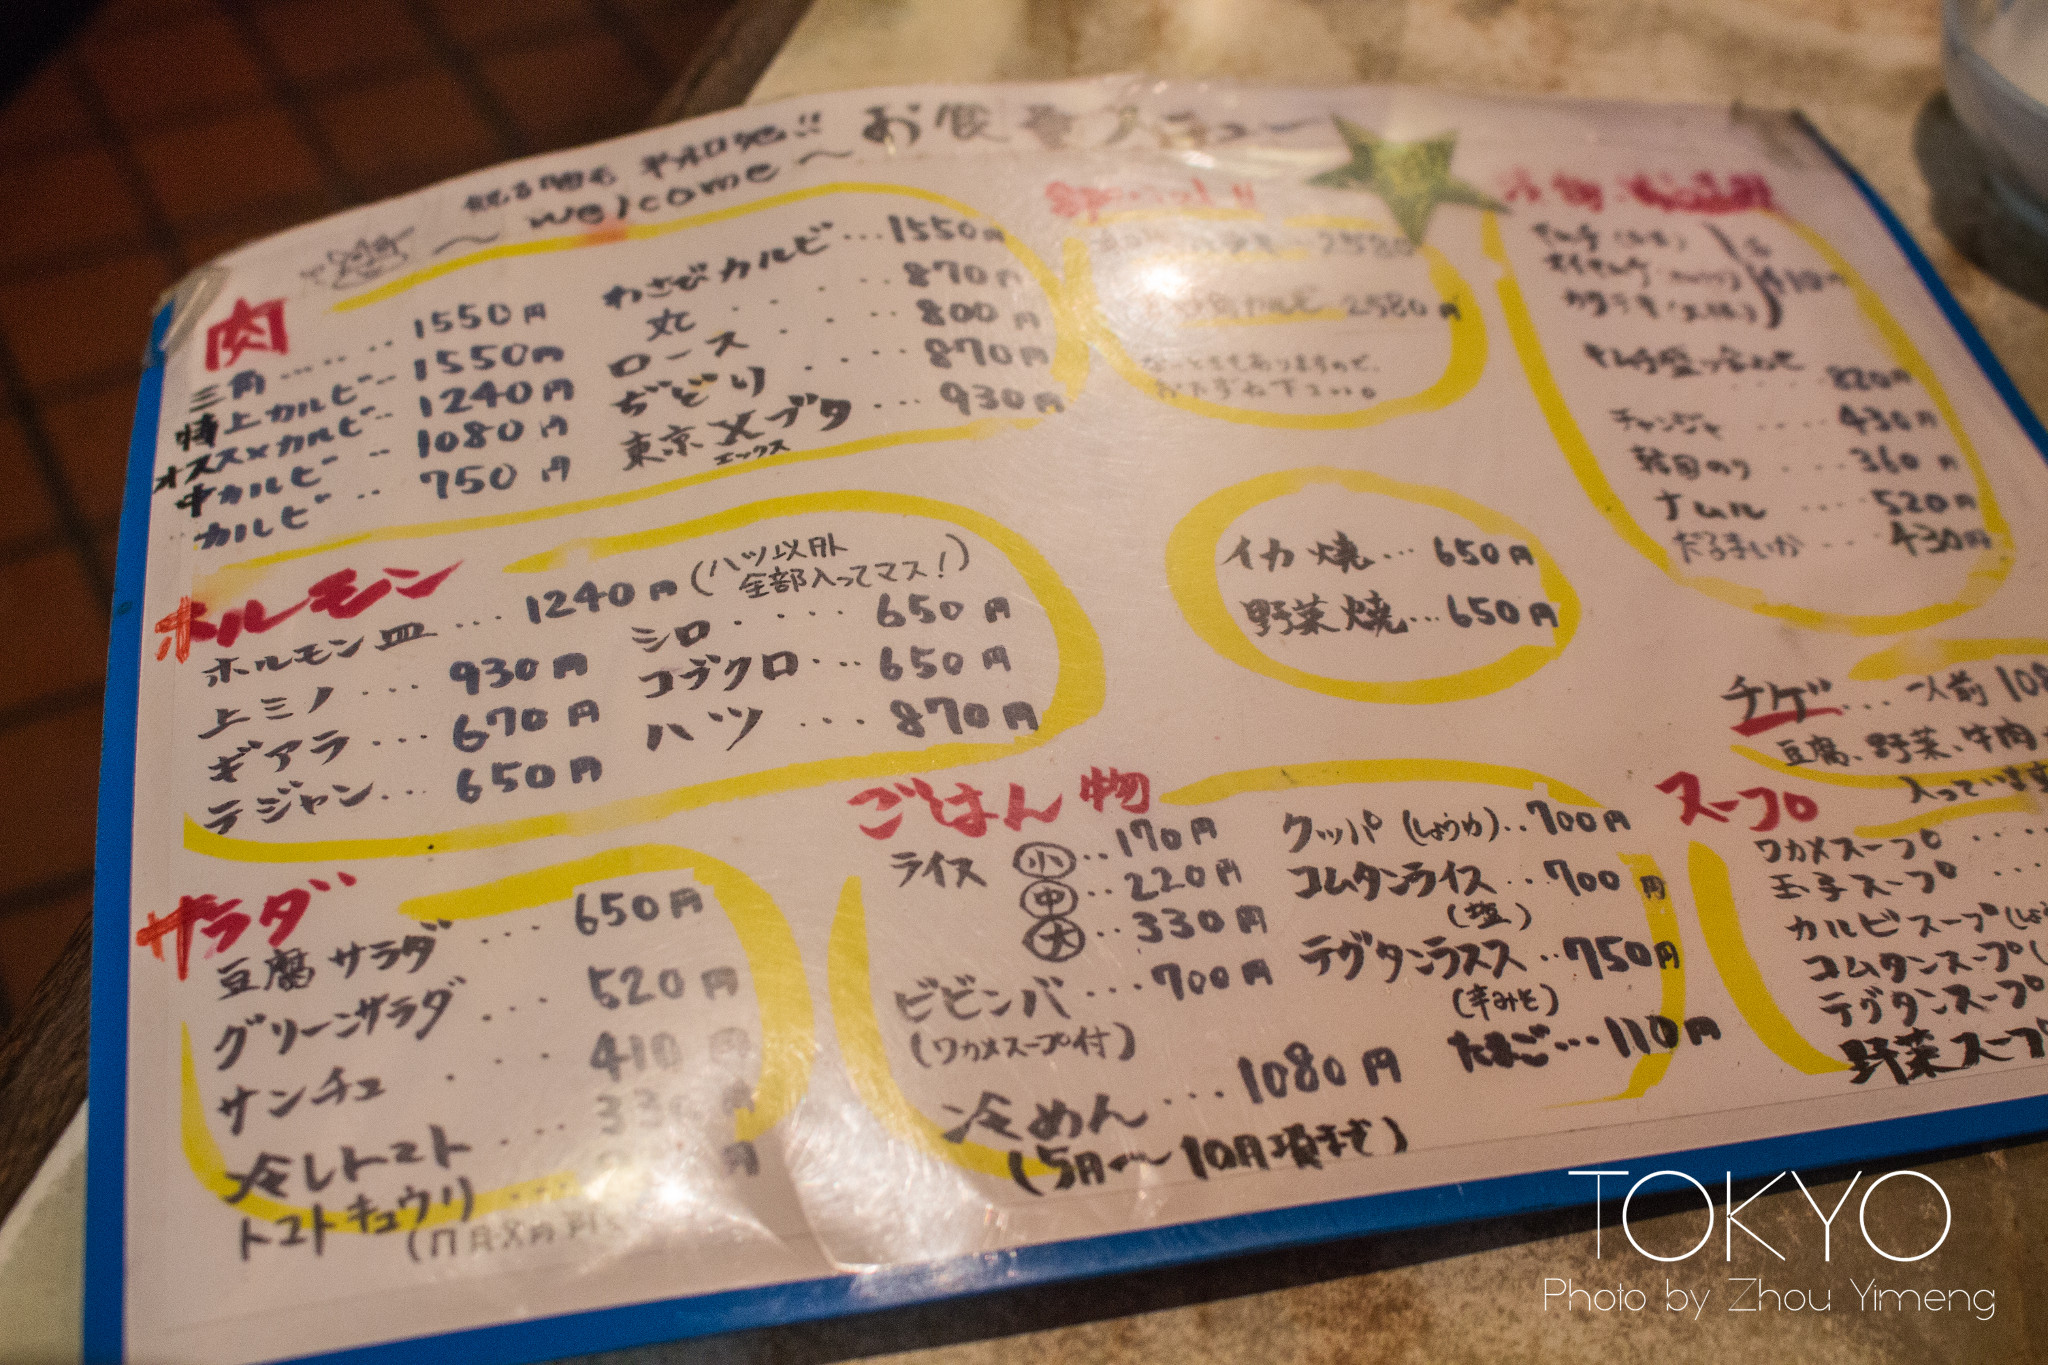 ～welcome～
お食事メニュー
肉
三角……‥1550円
特上カルビ‥1550円
オススメカルビ‥1240円
中カルビ‥1080円
カルビ‥750円
わさびカルビ…1550円
丸‥‥870円
ロース‥‥800円
ぢどり‥‥870円
東京Xブタ…930円
エックス
2580
カルビ 2580円
ありますので、
おたずね下さい。
キムチ盛り合わせ
820円
チャンジャ‥‥430円
韓国のり‥‥360円
ナムル‥‥520円
だるまいか…430円
イカ焼…650円
野菜焼…650円
ホルモン
ホルモン皿…1240円(ハツ以外
全部入ってマス!)
上ミノ…930円
ギアラ…670円
テジャン…650円
シロ‥‥650円
コブクロ…650円
ハツ…870円
チゲ…一人前
豆腐、野菜、牛肉
入っています
サラダ
豆腐サラダ…650円
グリーンサラダ…520円
サンチュ‥‥410円
冷しトマト…
トマトキュウリ…円
ごはん物
ライス 小‥170円
中‥220円
大‥330円
ビビンバ…700円
(ワカメスープ付)
冷めん…1080円
(5月～10月頃まで)
クッパ(しょうゆ)‥700円
コムタンライス‥700円
(塩)
テグタンライス‥750円
(辛みそ)
たまご…110円
スープ
ワカメスープ‥‥
玉子スープ‥‥
カルビスープ(
コムタンスープ(
テグタンスープ
野菜スープ
TOKYO
Photo by Zhou Yimeng